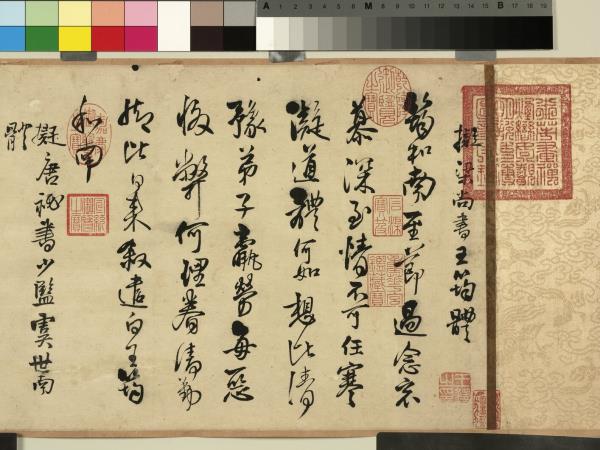 A 1 2 3 4 5 6 M 8 9 10 11 12 13 14 15 B 17 18 19
擬梁尚書王筠體
筠和南至節過念哀
慕深至情不可任寒
凝道體何如想比清
豫弟子羸勞每惡
惙弊何理眷清勤
比日來敘遣白王筠
和南
擬唐秘書少監虞世南
體